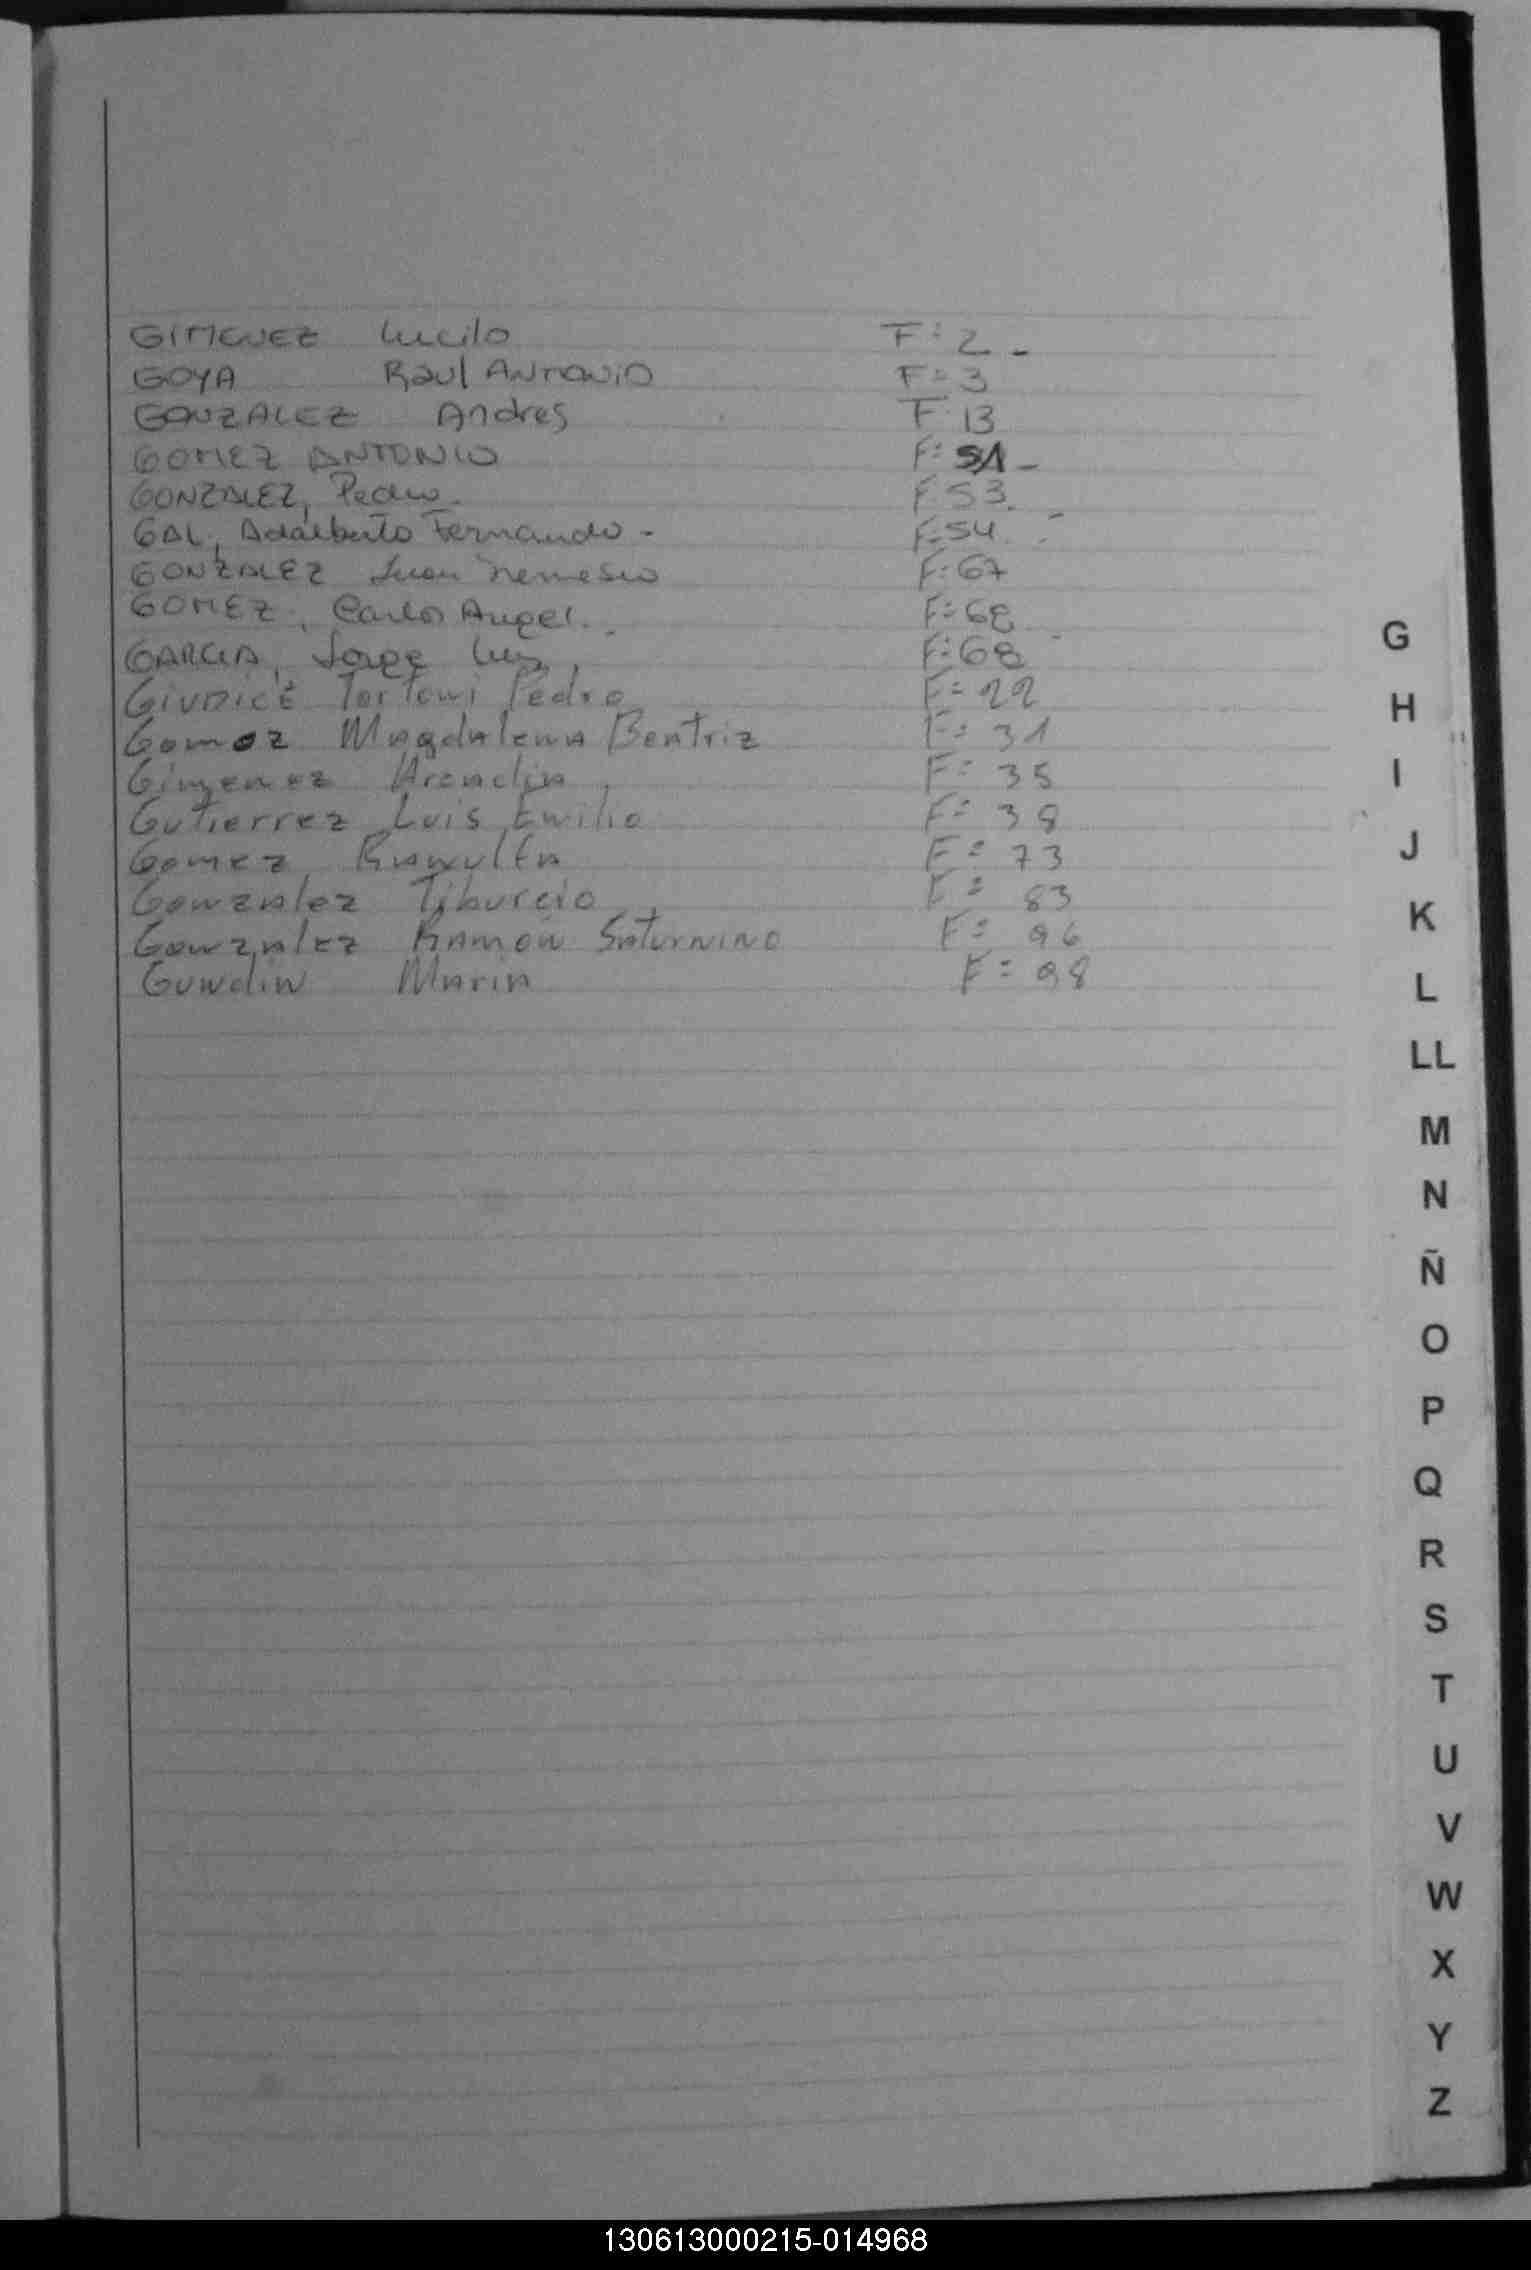 GIMENEZ Lucilo F: 2 -
GOYA Raul ANTONIO F= 3
GONZALEZ Andres F. 13
GOMEZ ANTONIO F: 51 -
GONZALEZ, Pedro. F. 53.
GAL, Adalberto Fernando - F. 54 -
GONZALEZ Juan Nemesio F: 67
GOMEZ, Carlos Angel. F: 68
GARCIA, Jorge Luis, F: 68
GIUDICE Tortoni Pedro F= 22
Gomez Magdalena Beatriz F= 31
Gimenez F= 35
Gutierrez Luis Emilio F= 38
Gomez F= 73
Gonzalez Tiburcio F= 83
Gonzalez Ramon Saturnino F= 96
Gundin Maria F= 98
G
H
I
J
K
L
LL
M
N
Ñ
O
P
Q
R
S
T
U
V
W
X
Y
Z
130613000215-014968